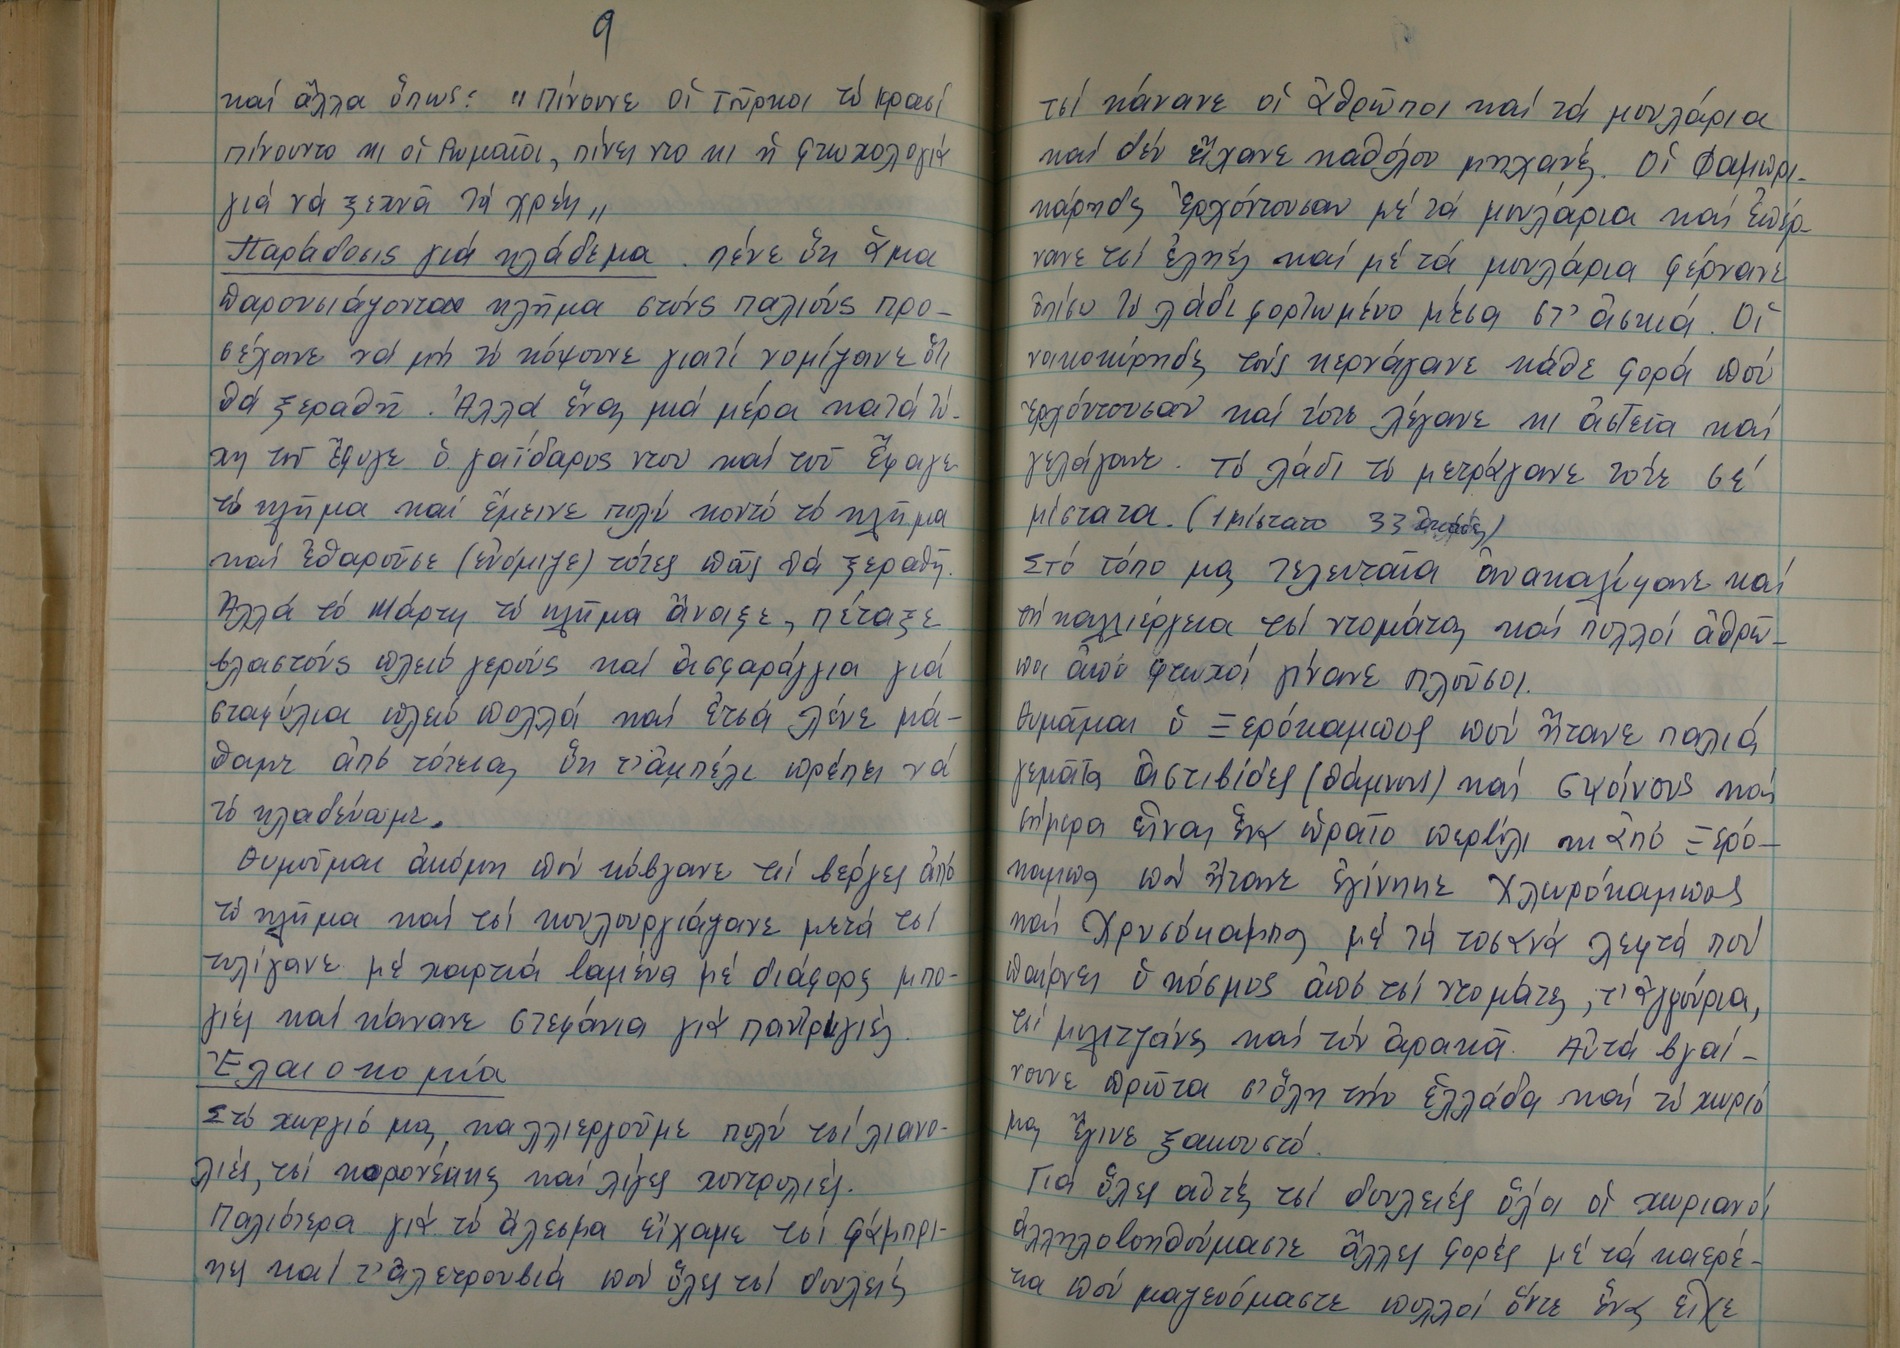 9
καί ἄλλα ὅπως: "Πίνουνε οἱ Τοῦρκοι τό κρασί
πίνουντο κι οἱ Ρωμαῖοι, πίνει ντο κι ἡ φτωχολογιά
γιά νά ξεχνᾶ τά χρέη"
Παράδοσις γιά κλάδεμα. Λένε ὅτι ἅμα
παρουσιάζοντο κλῆμα στούς παλιούς προ-
σέχανε νά μή τό κόψουνε γιατί νομίζανε ὅτι
θά ξεραθῆ. Ἀλλά ἕνας μιά μέρα κατά τύ-
χη τοῦ ἔφυγε ὁ γαΐδαρος ντου καί τοῦ ἔφαγε
τό κλῆμα καί ἔμεινε πολύ κοντό τό κλῆμα
καί ἐθαροῦσε (ἐνόμιζε) τότες πῶς θά ξεραθῆ.
Ἀλλά τό Μάρτη τό κλῆμα ἄνοιξε, πέταξε
βλαστούς πλειό γερούς καί ἀσφαράγγια γιά
σταφύλια πλειό πολλά καί ἐτσά λένε μά-
θαμε ἀπό τότεσας ὅτι τ' ἀμπέλι πρέπει νά
τό κλαδεύωμε.
Θυμοῦμαι ἀκόμη πού κόβγανε τσί βέργες ἀπό
τό κλῆμα καί τσί κουλουργιάζανε μετά τσί
τυλίγανε μέ χαρτιά βαμένα μέ διάφορες μπο-
γιές καί κάνανε στεφάνια γιά παντριγιές.
Ἐλαιοκομία
Στό χωργιό μας καλλιεργοῦμε πολύ τσί λιανο-
λιές, τσί κορονέικες καί λίγες χοντρολιές.
Παλιότερα γιά τό ἄλεσμα εἴχαμε τσί φάμπρι-
κες καί τ' ἀλετρουβιά πού ὅλες τσί δουλειές
τσί κάνανε οἱ ἀθρῶποι καί τά μουλάρια
καί δέν εἴχανε καθόλου μηχανές. Οἱ Φαμπρι-
κάρηδες ἐρχόντουσαν μέ τά μουλάρια καί ἐπέρ-
νανε τσί ἐλιές καί μέ τά μουλάρια φέρνανε
ὀπίσω τό λάδι φορτωμένο μέσα στ' ἀσκιά. Οἱ
νοικοκύρηδες τούς κερνάγανε κάθε φορά πού
ἐρχόντουσαν καί τότε λέγανε κι ἀστεῖα καί
γελάγανε. Τό λάδι τό μετράγανε τότε σέ
μίστατα. (1 μίστατο 33
Στό τόπο μας τελευταῖα ἀνακαλύψανε καί
τή καλλιέργεια τσί ντομάτας καί πολλοί ἀθρῶ-
ποι ἀπό φτωχοί γίνανε πλούσοι.
Θυμᾶμαι ὁ Ξερόκαμπος πού ἤτανε παλιά
γεμᾶτος ἀστιβίδες (θάμνους) καί σχοίνους καί
σήμερα εἶναι ἕνα ὡραῖο περβόλι κι ἀπό Ξερό-
καμπος πού ἤτανε ἐγίνηκε Χλωρόκαμπος
καί Χρυσόκαμπος μέ τά τοσανά λεφτά πού
παίρνει ὁ κόσμος ἀπό τσί ντομάτες, τ' ἀγγούρια,
τσί μελιτζάνες καί τόν ἀρακᾶ. Αὐτά βγαί-
νουνε πρῶτα σ' ὅλη τήν Ἑλλάδα καί τό χωριό
μας ἔγινε ξακουστό.
Γιά ὅλες αὐτές τσί δουλειές ὅλοι οἱ χωριανοί
ἀλληλοβοηθούμαστε ἄλλες φορές μέ τά καερέ-
τια πού μαζευόμαστε πολλοί ὅντε ἕνας εἶχε